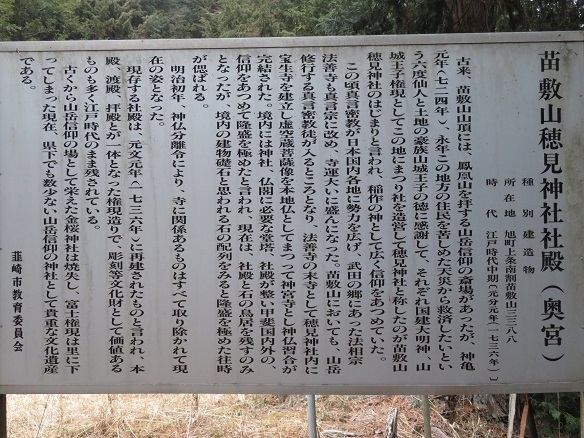 苗敷山穂見神社社殿（奥宮）
種別 建造物
所在地 旭町上条南割苗敷山三三八八
時代 江戸時代中期（元分元年（一七三六年））
古来、苗敷山山頂には、鳳凰山を拝する山岳信仰の斎場があったが、神亀
元年（七二四年）、永年この地方の住民を苦しめた天災から救済したいとい
う六度仙人と土地の豪族山城王子の徳に感謝して、それぞれ国建大明神、山
城王子権現としてこの地にまつり社を造営して穂見神社と称したのが苗敷山
穂見神社のはじまりと言われ、稲作の神として広く信仰をあつめていた。
この頃真言密教が日本国内各地に勢力を広げ、武田の郷にあった法相宗
法善寺も真言宗に改め、寺運大いに盛んになった。苗敷山においても、山岳
修行する真言密教徒が入るところとなり、法善寺の末寺として穂見神社内に
宝生寺を建立し虚空蔵菩薩像を本地仏としてまつって神宮寺とし神仏習合が
完結された。境内には神社、仏閣に必要な堂塔、社殿が整い甲斐国内外の、
信仰をあつめて隆盛を極めたと言われ、現在は、社殿と石の鳥居を残すのみ
となったが、境内の建物礎石と思われる石の配列をみると隆盛を極めた往時
が偲ばれる。
明治初年、神仏分離令により、寺に関係あるものはすべて取り除かれて現
在の姿となった。
現存する社殿は、元文元年（一七三六年）に再建されたものと言われ、本
殿、渡殿、拝殿とが一体となった権現造りで、彫刻等文化財として価値ある
ものも多く江戸時代のまま残されている。
古くから山岳信仰の場として栄えた金桜神社は焼失し、富士権現は里に下
ってしまった現在、県下でも数少ない山岳信仰の神社として貴重な文化遺産
である。
韮崎市教育委員会